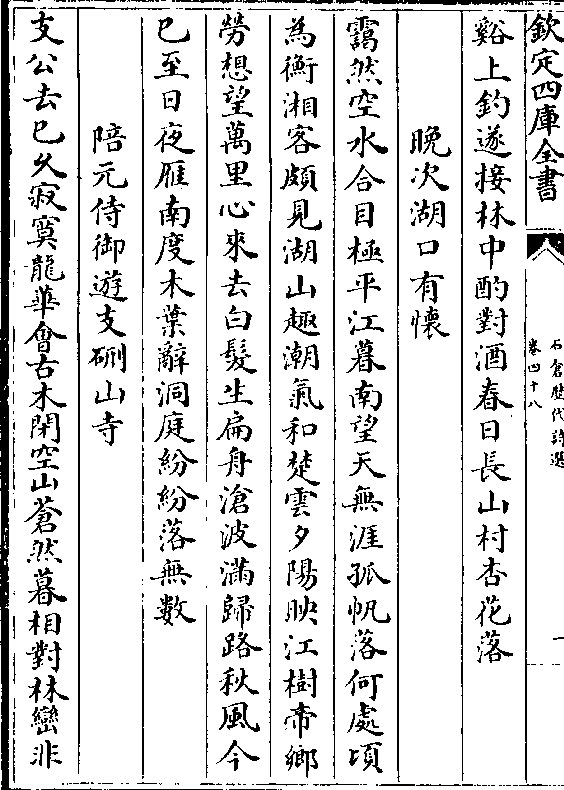 欽定四庫全書
石倉歴代詩選
卷四十八
一
谿上釣遂接林中酌對酒春日長山村杏花落
晩次湖口有懷
靄然空水合目極平江暮南望天無涯孤帆落何處頃
為衡湘客頗見湖山趣潮氣和楚雲夕陽映江樹帝鄉
勞想望萬里心來去白髮生扁舟滄波滿歸路秋風今
已至日夜雁南度木葉辭洞庭紛紛落無數
陪元侍御遊支硎山寺
支公去已久寂寞龍華會古木閉空山蒼然暮相對林巒非